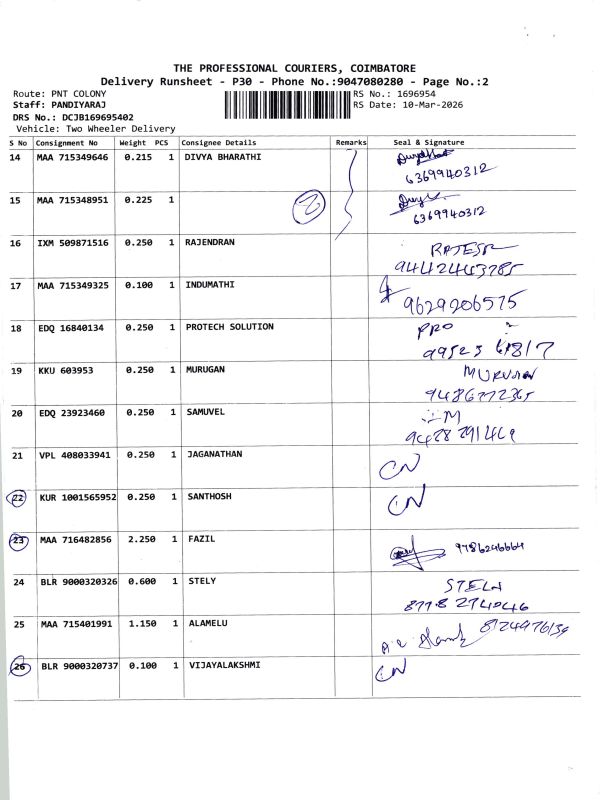 THE PROFESSIONAL COURIERS, COIMBATORE
Delivery Runsheet - P30 - Phone No.:9047080280 - Page No.:2
Route: PNT COLONY RS No.: 1696954
Staff: PANDIYARAJ RS Date: 10-Mar-2026
DRS No.: DCJB169695402
Vehicle: Two Wheeler Delivery
S No Consignment No Weight PCS Consignee Details Remarks Seal & Signature
14 MAA 715349646 0.215 1 DIVYA BHARATHI
6369940312
15 MAA 715348951 0.225 1 2
6369940312
16 IXM 509871516 0.250 1 RAJENDRAN
9442443785
17 MAA 715349325 0.100 1 INDUMATHI
9629206575
18 EDQ 16840134 0.250 1 PROTECH SOLUTION PRO
19 KKU 603953 0.250 1 MURUGAN
9486772365
20 EDQ 23923460 0.250 1 SAMUVEL M
21 VPL 408033941 0.250 1 JAGANATHAN CN
22 KUR 1001565952 0.250 1 SANTHOSH CN
23 MAA 716482856 2.250 1 FAZIL 9786246664
24 BLR 9000320326 0.600 1 STELY
25 MAA 715401991 1.150 1 ALAMELU
26 BLR 9000320737 0.100 1 VIJAYALAKSHMI CN